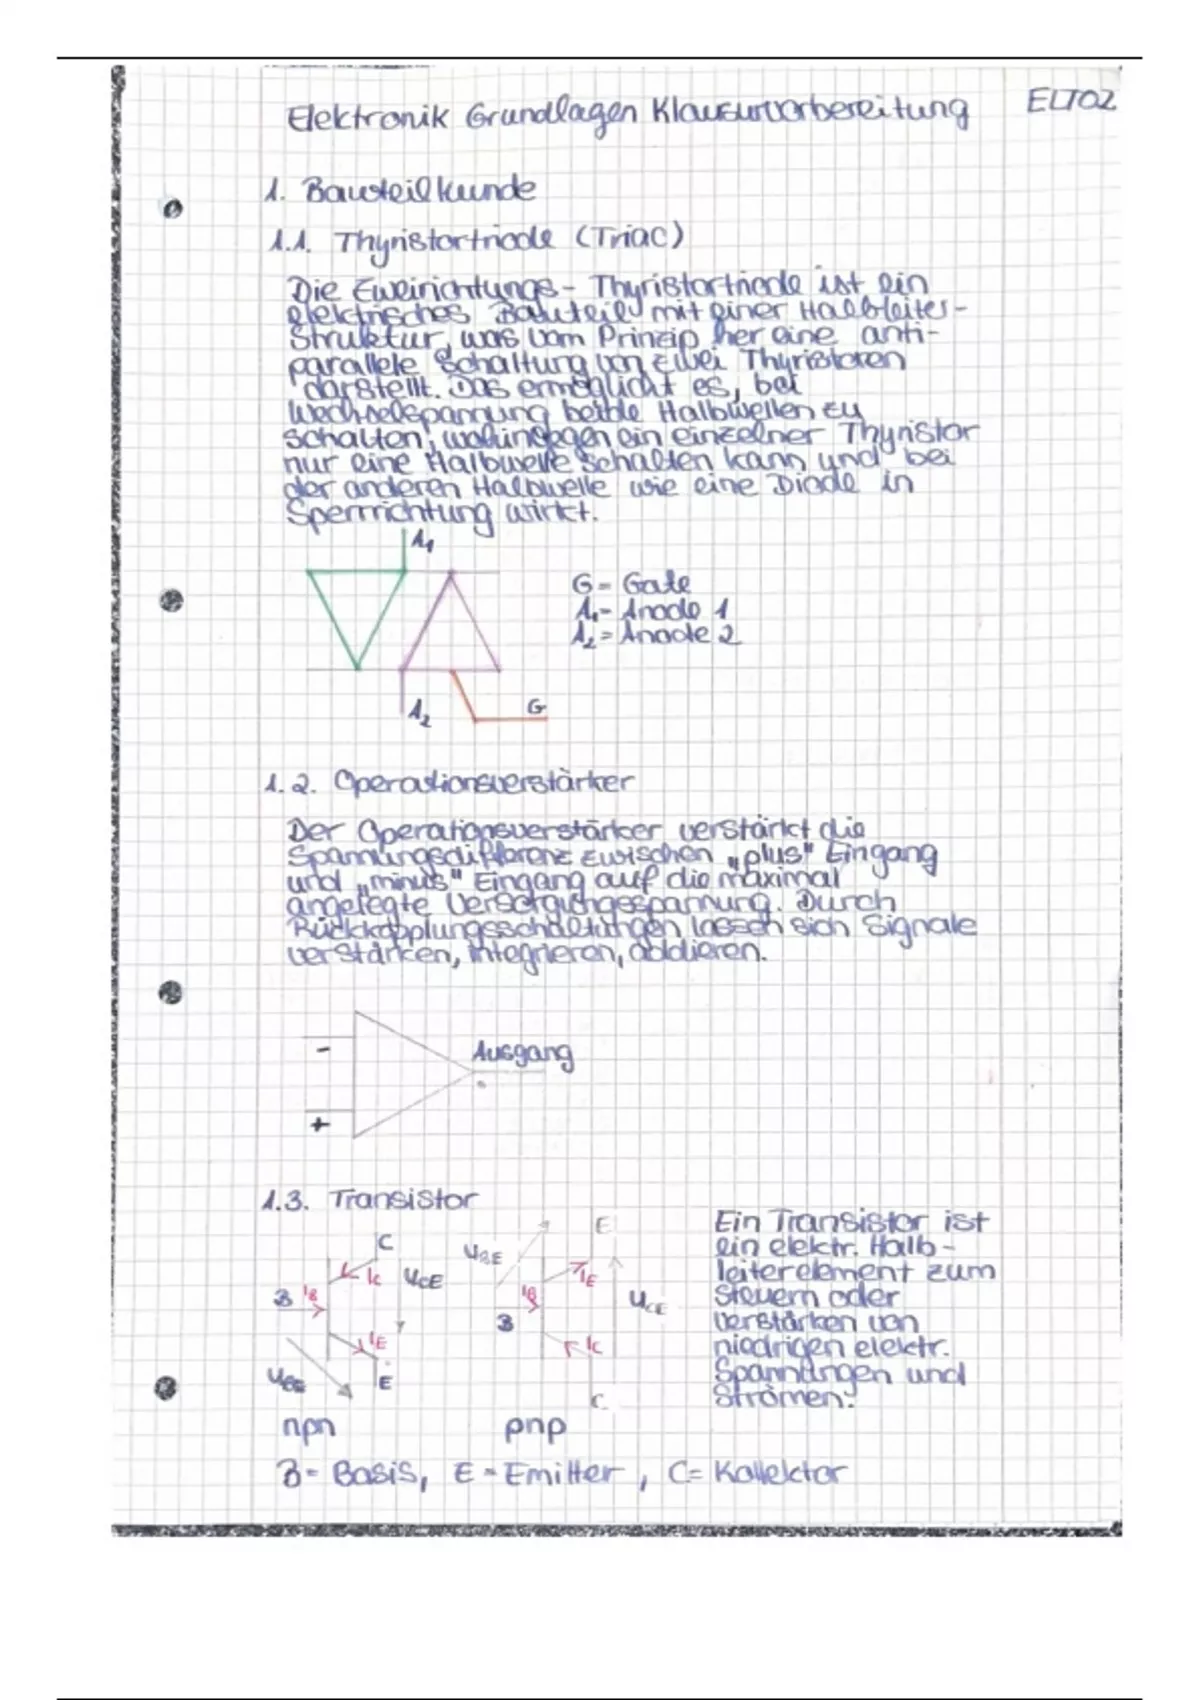 Elektronik Grundlagen Klausurvorbereitung ELT02
1. Bauteilkunde
1.1. Thyristortriode (Triac)
Die Zweirichtungs- Thyristortriode ist ein
elektrisches Bauteil mit einer Halbleiter-
Struktur, was vom Prinzip her eine anti-
parallele Schaltung von zwei Thyristoren
darstellt. Das ermöglicht es, bei
Wechselspannung beide Halbwellen zu
schalten, wohingegen ein einzelner Thyristor
nur eine Halbwelle schalten kann und bei
der anderen Halbwelle wie eine Diode in
Sperrrichtung wirkt.
A1
G = Gate
A1 = Anode 1
A2 = Anode 2
A2 G
1.2. Operationsverstärker
Der Operationsverstärker verstärkt die
Spannungsdifferenz zwischen „plus" Eingang
und „minus" Eingang auf die maximal
angelegte Versorgungsspannung. Durch
Rückkopplungsschaltungen lassen sich Signale
verstärken, integrieren, addieren.
- Ausgang
+
1.3. Transistor
C IC UCE
B IB
IE
UBE E
npn
UBE E
IE
IB UCE
B
IC
C
pnp
Ein Transistor ist
ein elektr. Halb-
leiterelement zum
Steuern oder
verstärken von
niedrigen elektr.
Spannungen und
Strömen.
B = Basis, E = Emitter, C = Kollektor